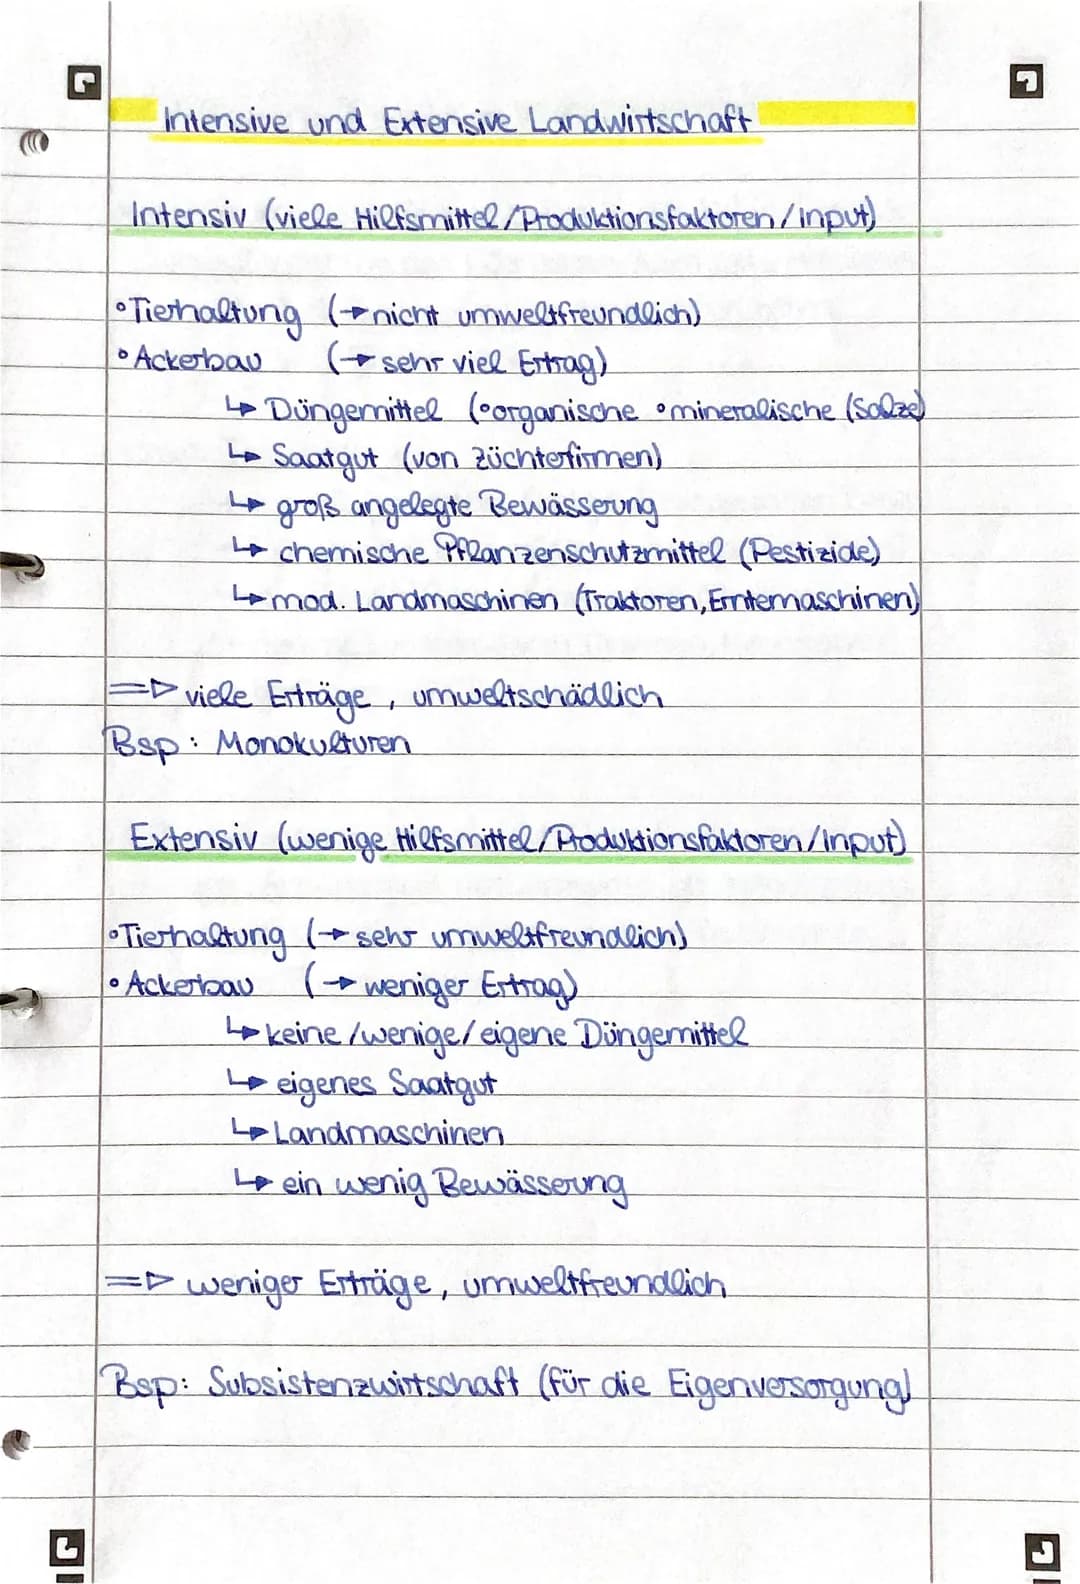 Intensive und Extensive Landwirtschaft
Intensiv (viele Hilfsmittel/Produktionsfaktoren/input)
• Tierhaltung (→ nicht umweltfreundlich)
• Ackerbau (→ sehr viel Ertrag)
↳ Düngemittel (•organische •mineralische (Salze)
↳ Saatgut (von Züchterfirmen)
↳ groß angelegte Bewässerung
↳ chemische Pflanzenschutzmittel (Pestizide)
↳ mod. Landmaschinen (Traktoren, Erntemaschinen)
=> viele Erträge, umweltschädlich
Bsp: Monokulturen
Extensiv (wenige Hilfsmittel/Produktionsfaktoren/Input)
• Tierhaltung (→ sehr umweltfreundlich)
• Ackerbau (→ weniger Ertrag)
↳ keine/wenige/eigene Düngemittel
↳ eigenes Saatgut
↳ Landmaschinen
↳ ein wenig Bewässerung
=> weniger Erträge, umweltfreundlich
Bsp: Subsistenzwirtschaft (für die Eigenversorgung)